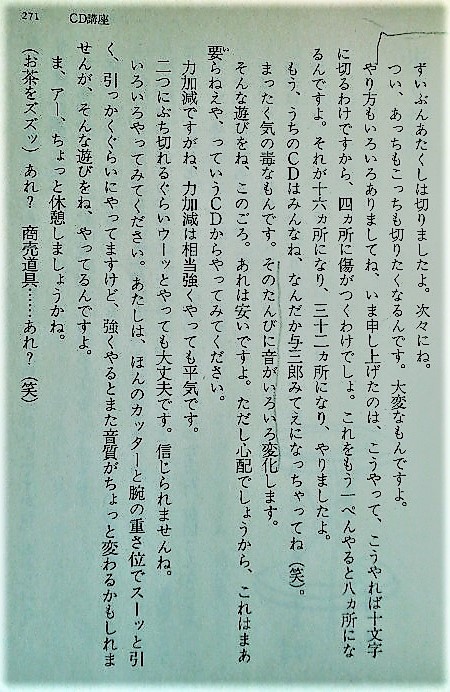 271 CD講座
ずいぶんあたくしは切りましたよ。次々にね。
つい、あっちもこっちも切りたくなるんです。大変なもんですよ。
やり方もいろいろありましてね、いま申し上げたのは、こうやって、こうやれば十文字
に切るわけですから、四ヵ所に傷がつくわけでしょ。これをもう一ぺんやると八ヵ所にな
るんですよ。それが十六ヵ所になり、三十二ヵ所になり、やりましたよ。
もう、うちのCDはみんなね、なんだか与三郎みてえになっちゃってね(笑)。
まったく気の毒なもんです。そのたんびに音がいろいろ変化します。
そんな遊びをね、このごろ。あれは安いですよ。ただし心配でしょうから、これはまあ
要らねえや、っていうCDからやってみてください。
力加減ですがね、力加減は相当強くやっても平気です。
二つにぶち切れるぐらいウーッとやっても大丈夫です。信じられませんね。
いろいろやってみてください。あたしは、ほんのカッターと腕の重さ位でスーッと引
く、引っかくぐらいにやってますけど、強くやるとまた音質がちょっと変わるかもしれま
せんが、そんな遊びをね、やってるんですよ。
ま、アー、ちょっと休憩しましょうかね。
(お茶をズズッ)あれ? 商売道具……あれ?(笑)